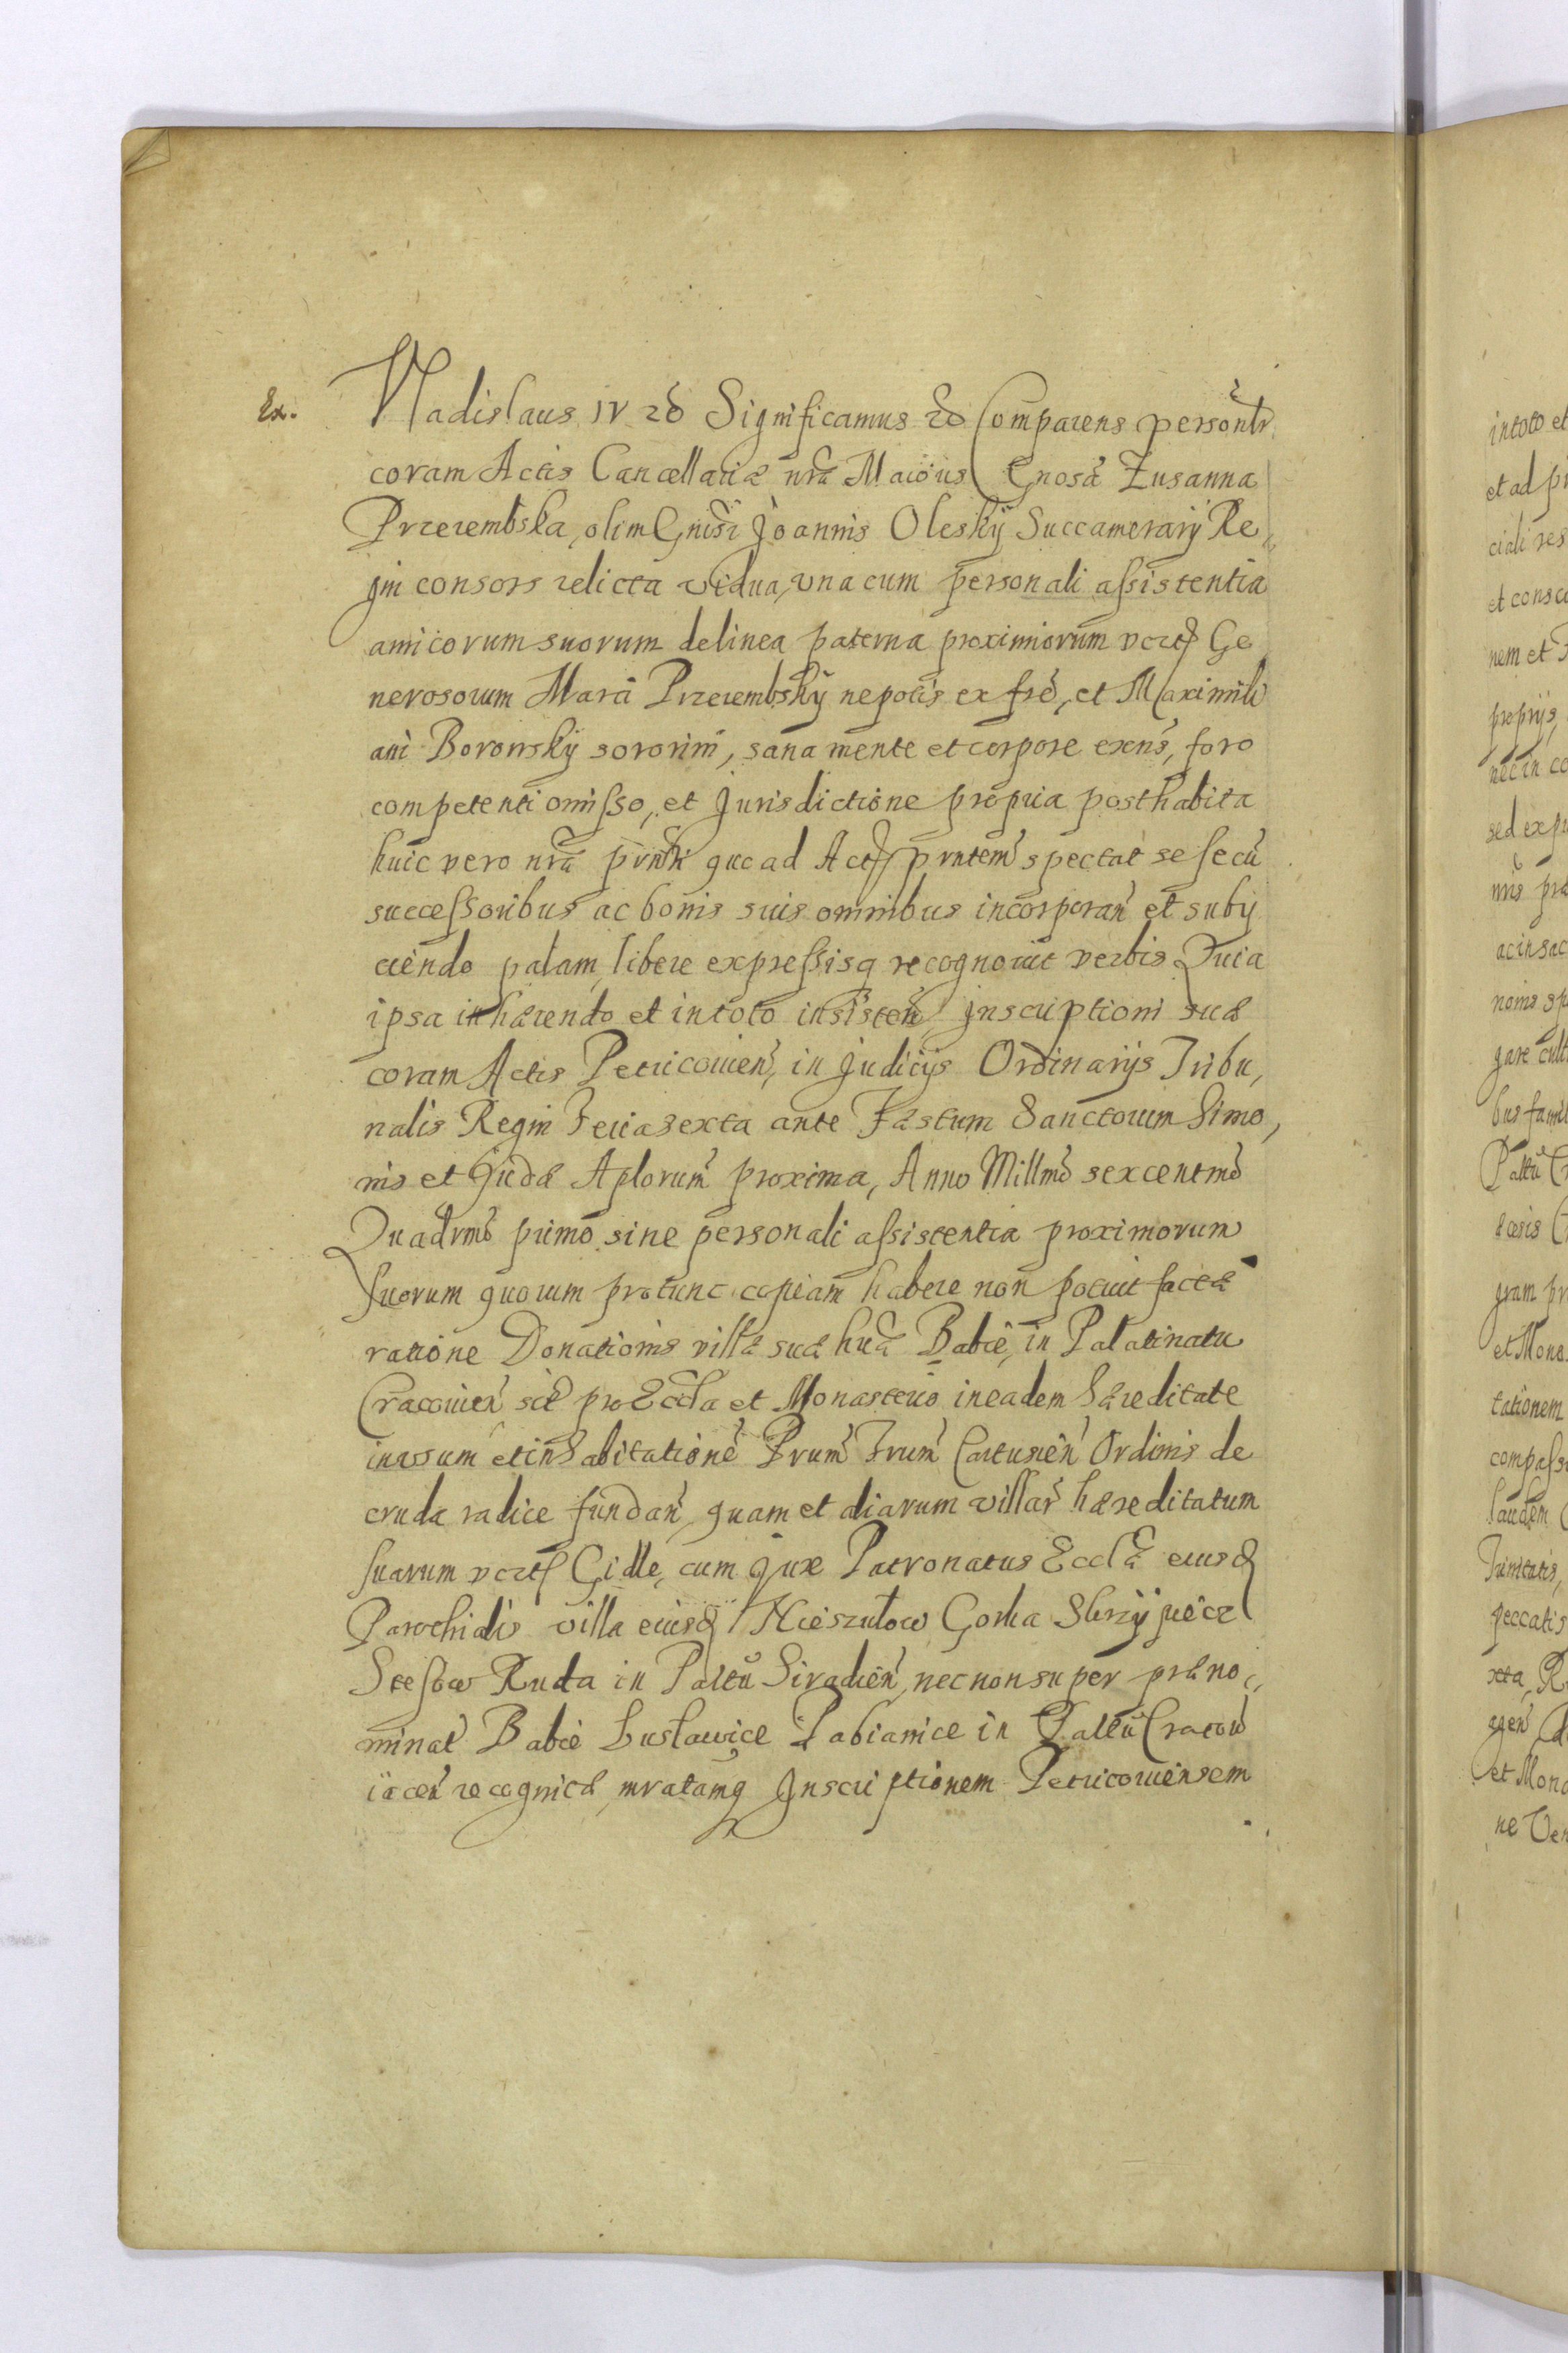 Ex.
Vladislaus IV &c Significamus &c Comparens personlr
coram Actis Cancellariæ nræ Maioris Gnosa Zusanna
Przerembska, olim Gnisi Joannis Olesky Succamerarij Re,,
gni consors relicta vidua, una cum personali assistentia
amicorum suorum de linea paterna proximiorum vcz Ge
nerosorum Mara Przerembsky nepotis ex fre, et Maximili
ani Boronsky sororini, sana mente et corpore exens, foro
competenti omisso, et Jurisdictione propria posthabita
huic vero nræ quo ad Act pntem spectat se secu
successoribus ac bonis suis omnibus incorporan et subij
ciendo palam, libere expressisq recognovit verbis Quia
ipsa inhærendo et in toto insisten Inscriptioni suæ
coram Actis Petricovien, in Judicijs Ordinarijs Tribu,
nalis Regni Feria sexta ante Fæstum Sanctorum Simo,
nis et Judæ Aplorum proxima, Anno Millmo sexcentmo
Quadrmo primo sine personali assistentia proximorum
suorum quorum pro tunc copiam habere non potuit factæ
ratione Donationis villæ suæ huæ Babie, in Palatinatu
Cracovien sit pro Eccla et Monasterio in eadem hæreditate
in usum et inhabitatione Prum Frum Cartusien Ordinis de
cruda radice fundan, quam et aliarum villar hæreditatum
suarum vcz Gidle, cum Jure Patronatus Ecclæ eiusd
Parochialis villa eiusd Nieszulow Gorka
Ruda in Paltu Siradien, nec non super præno,,
minat Babie Luslawice Pabianice in Paltu Cracov
iacen recognitæ, mratamq Inscriptionem Petricoviensem
in toto et
et ad pr
ciali res
nem et
proprijs,
nec in co
sed ex pr
nis præ
ac in sac
nomis sp
gare cult
bus famil
Paltu Cr
gram pr
et Mona
tationem
compass
laudem
Trinitatis,
peccatis
et Mona
ne Ven